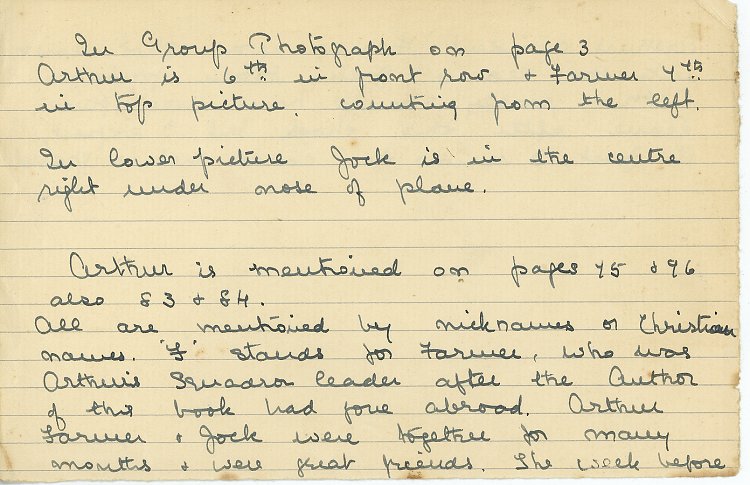 In Group Photograph on page 3
Arthur is 6th in front row & Farmer 7th
in top picture. counting from the left.
In lower picture Jock is in the centre
right under nose of plane.
Arthur is mentioned on pages 75 & 76
also 83 & 84.
All are mentioned by nicknames or Christian
names. 'F' stands for Farmer, who was
Arthur's Squadron leader after the Author
of this book had gone abroad. Arthur
Farmer & Jock were together for many
months & were great friends. The week before